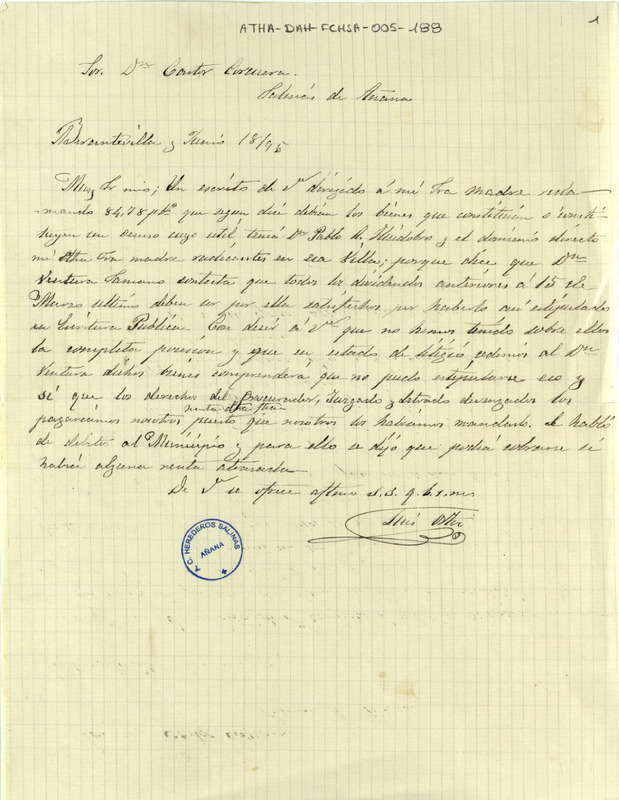 ATHA-DAH-FCHSA-005-188
1
Sor. Dn Castor Corcuera.
Salinas de Añana
Berantevilla y Junio 18/95
Muy Sr mio; Un escrito de Vd dirigido á mi Sra madre recla-
-mando 84,78 pts que segun dice debian los bienes que constituian ó consti-
tuyen un censo cuyo util tenia Dn Pablo H. Huidobro y el dominio directo
mi Sra madre radicantes en esa villa; porque dice que Dn
Ventura Samano contesta que todos los dividendos anteriores á 15 de
Marzo ultimo deben ser por ella satisfechos por haberlo asi estipulado
en Escritura Publica. Con decir á Vd que no hemos tenido sobre ellos
la completa posesion y que en estado de litigio cedimos al Dn
Ventura dichos bienes comprenderá que no pudo estipularse eso y
sí que los derechos del Procurador, Juzgado y letrado devengados los
pagariamos nosotros puesto que nosotros los habiamos mandado. Se habló
de debitos al Municipio y para ello se dijo que podria cobrarse si
habia alguna renta atrasada
De Vd se ofrece afftmo s.s. q.b.s.m.
Luis
A. C. HEREDEROS SALINAS
AÑANA